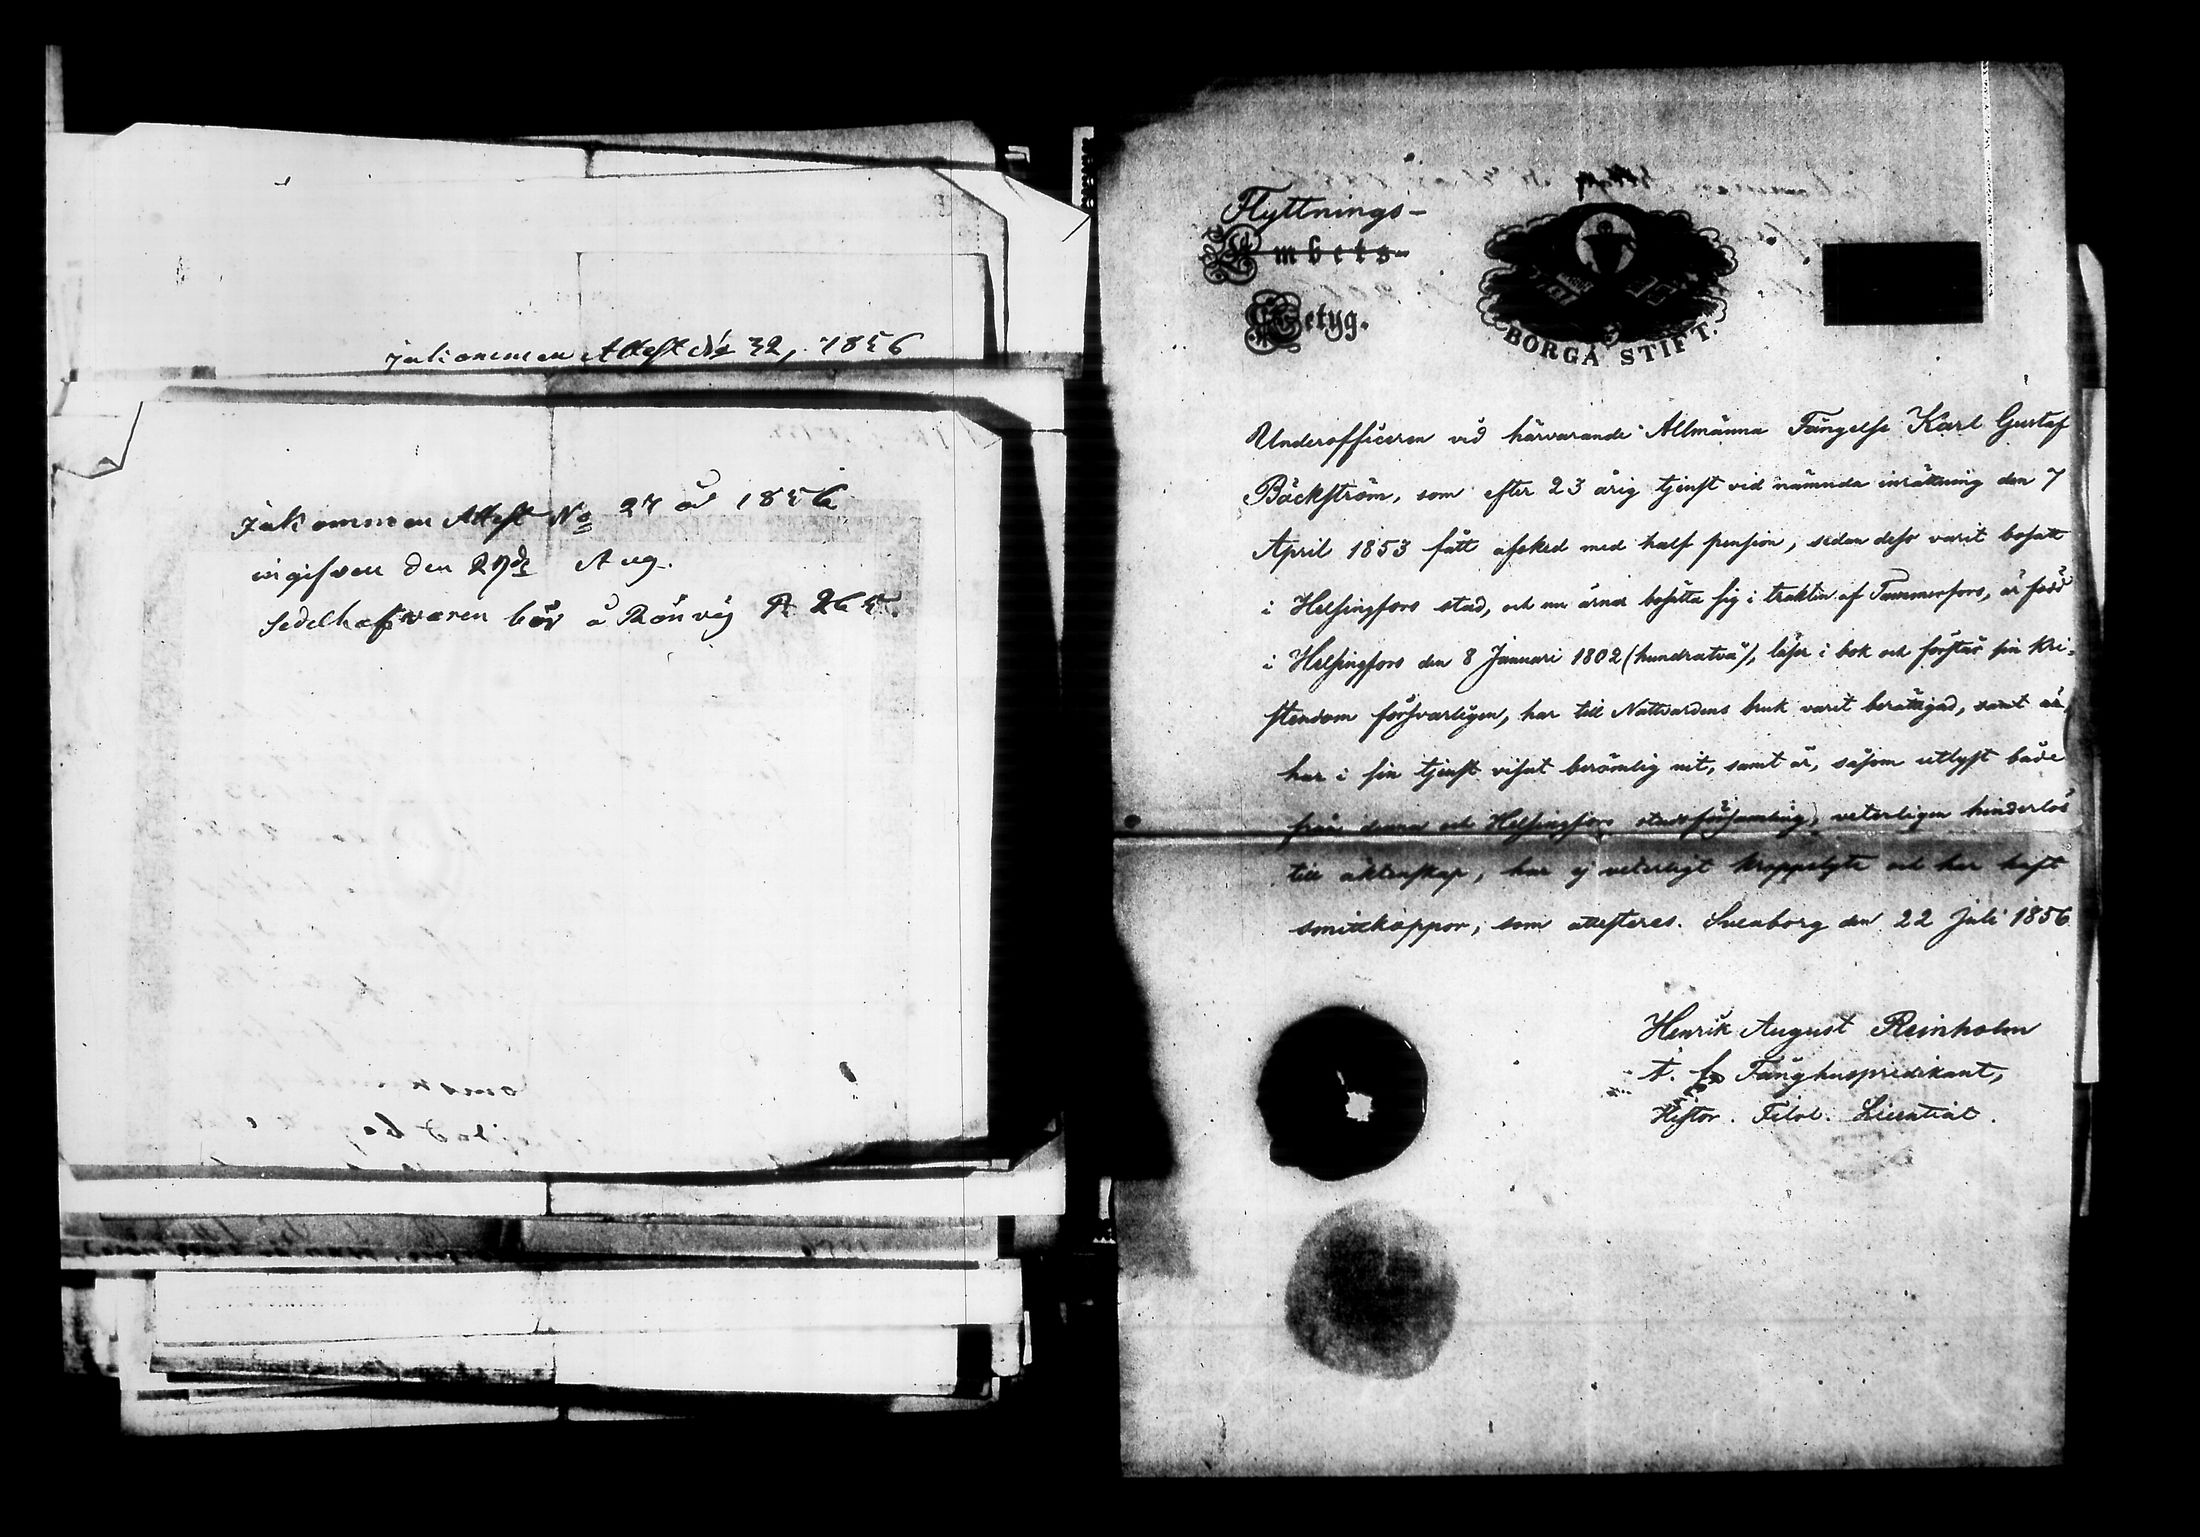 Inkommen Attest No 32, 1856
Inkommen Attest No 27 år 1856
ingifven den 27de Aug.
Sedelhafvaren bör å Rönvig
Flyttnings-
Ambets-
Betyg.
BORGÅ STIFT.
Underofficeren vid härvarande Allmänna Fängelse Karl Gustaf
Bäckström, som efter 23 årig tjenst vid nämnda inrättning den 7
April 1853 fått afsked med half pension, sedan dess varit bosatt
i Helsingfors stad, och nu ärnar bosätta sig i trakten af Tammerfors, är född
i Helsingfors den 8 Januari 1802 (hundratvå), läser i bok och förstår sin kri-
stendom försvarligen, har till Nattvardens bruk varit berättigad, samt är,
har i sin tjenst visat berömlig nit, samt är, såsom utlyst både
från denna och Helsingfors stadsförsamling, veterligen hinderlös
till äktenskap, har ej veterligt kroppslyte och har haft
smittkoppor, som attesteras. Sveaborg den 22 Juli 1856
Henrik August Reinholm
t. f. Fånghuspredikant,
Histor. Filol. Licentiat.